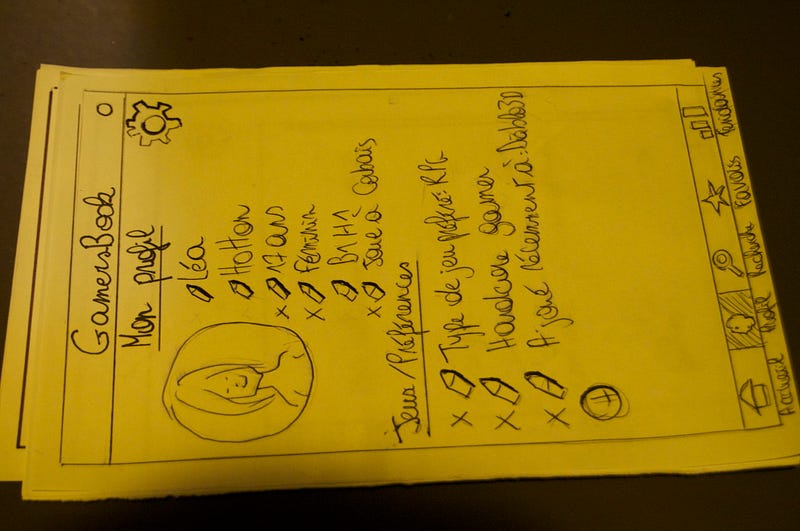 GamersBook
Mon profil
Léa
Hotton
x 17 ans
x Féminin
B1H1
x Joue à Cobais
Jeux/Préférences
x Type de jeu préféré: RPG
x Hardcore gamer
x A joué récemment à: Diablo3D
+
Accueil Profil Recherche Favoris Tendances